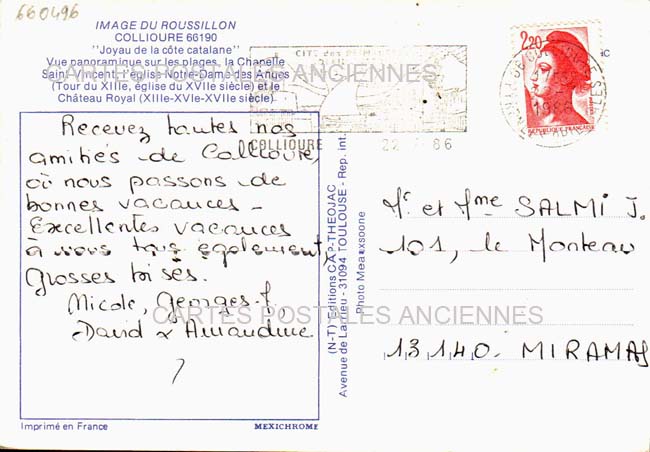 660496
IMAGE DU ROUSSILLON
COLLIOURE 66190
"Joyau de la côte catalane"
Vue panoramique sur les plages, la Chapelle
Saint-Vincent, l'église Notre-Dame des Anges
(Tour du XIIIe, église du XVIIe siècle) et le
Château Royal (XIIIe-XVIe-XVIIe siècle)
CARTES POSTALES ANCIENNES
CITE des
COLLIOURE 22 7 86
2,20
1986
REPUBLIQUE FRANÇAISE
Recevez toutes nos
amitiés de Collioure,
où nous passons de
bonnes vacances -
Excellentes vacances
à vous tous également,
grosses bises.
Nicole, Georges-J,
David & Amandine
(N-T) Editions CAP-THEOJAC
Avenue de Larrieu - 31094 TOULOUSE - Rep. int.
Photo
Mr et Mme SALMI J.
101, le Monteau
13140. MIRAMAS
CARTES POSTALES ANCIENNES
Imprimé en France
MEXICHROME